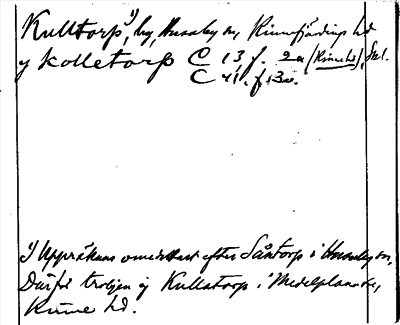 Kulltorp¹⁾, by, Husaby sn, Kinnefjärdings hd
y kolletorp C 13 f. 2v (Kinnehd), Skl.
C 41. f. 13v.
¹⁾ Uppräknas omedelbart efter Såntorp i Husaby sn,
Därför troligen ej Kullatorp i Medelplana sn,
Kinne hd.